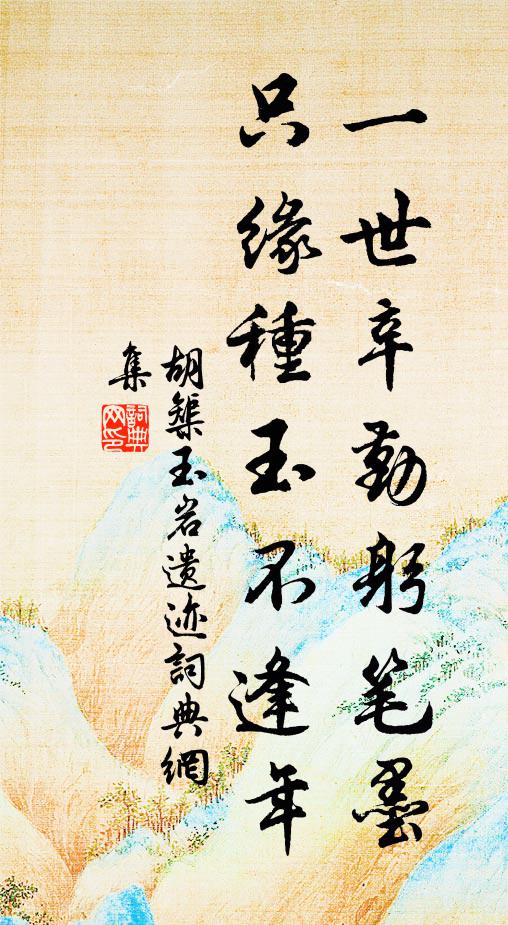 一世辛勤躬笔墨
只缘種玉不逢年
胡榘玉岩遗迹詞典網
集
詞典網印